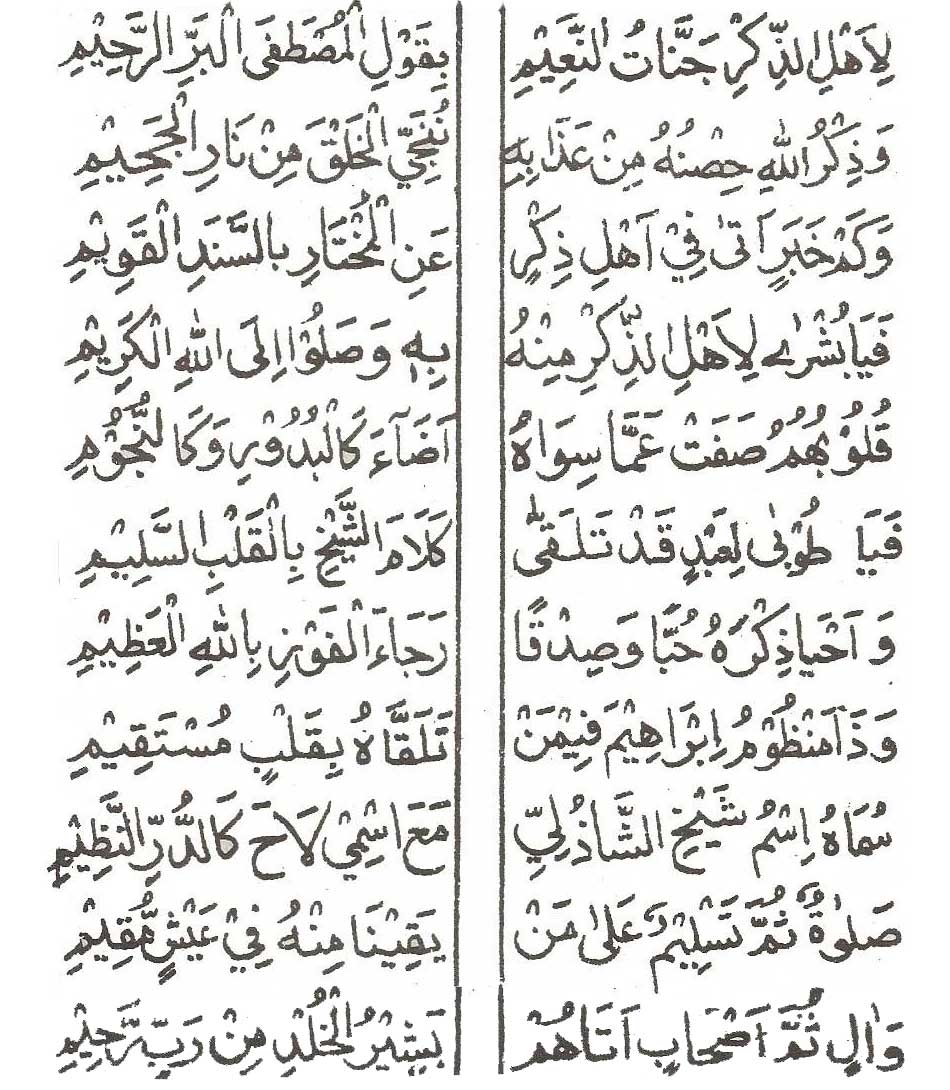 لِاَهْلِ الذِّكْرِ جَنَّاتُ النَّعِيْمِ بِقَوْلِ الْمُصْطَفَى الْبَرِّ الرَّحِيْمِ
وَذِكْرُ اللّٰهِ حِصْنُهُ مِنْ عَذَابِهِ نُنَجِّي الْخَلْقَ مِنْ نَارِ الْجَحِيْمِ
وَكَمْ خَبَرٍ اَتٰى فِيْ اَهْلِ ذِكْرٍ عَنِ الْمُخْتَارِ بِالسَّنَدِ الْقَوِيْمِ
فَيَا بُشْرٰى لِاَهْلِ الذِّكْرِ مِنْهُ بِهِ وَصَلُوْا اِلَى اللّٰهِ الْكَرِيْمِ
قُلُوْبُهُمُ صَفَتْ عَمَّا سِوَاهُ اَضَآءَ كَالْبُدُوْرِ وَكَالنُّجُوْمِ
فَيَا طُوْبٰى لِعَبْدٍ قَدْ تَلَقّٰى كَلَامَ الشَّيْخِ بِالْقَلْبِ السَّلِيْمِ
وَاَحْيَا ذِكْرَهُ حُبًّا وَصِدْقًا رَجَآءَ الْفَوْزِ بِاللّٰهِ الْعَظِيْمِ
وَذَا مَنْظُوْمُ اِبْرَاهِيْمَ فِيْمَنْ تَلَقَّاهُ بِقَلْبٍ مُسْتَقِيْمِ
سُمَاهُ اِسْمُ شَيْخِ الشَّاذُلِيّ مَعَ اسْمِيْ لَاحَ كَالدُّرِّ النَّظِيْمِ
صَلٰوةٌ ثُمَّ تَسْلِيْمٌ عَلٰى مَنْ يَقِيْنَا مِنْهُ فِيْ عَيْشٍ مُّقِيْمِ
وَاٰلٍ ثُمَّ اَصْحَابٍ اَتَاهُمْ بَشِيْرُ الْخُلْدِ مِنْ رَبٍّ رَّحِيْمِ